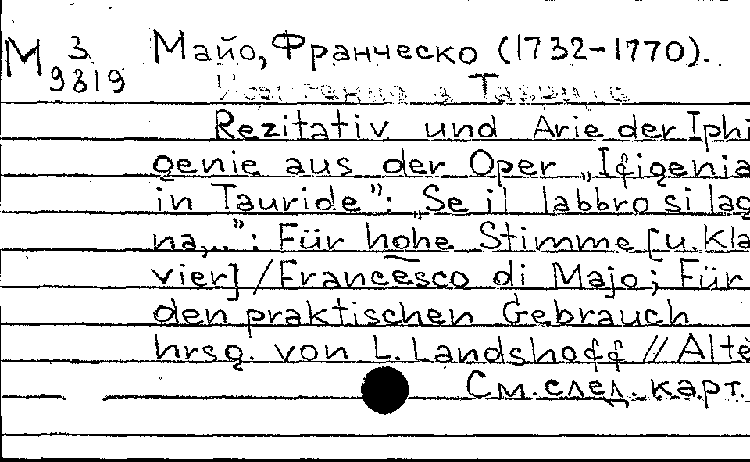 М 3 Майо, Франческо (1732-1770).
9819 Ифигения в Тавриде
Rezitativ und Arie der Iphi
genie aus der Oper „Ifigenia
in Tauride”: „Se il labbro si lag
na,..”: Für hohe Stimme [u. Kla
vier] / Francesco di Majo; Für
den praktischen Gebrauch
hrsg. von L. Landshoff // Alte
См. след. карт.